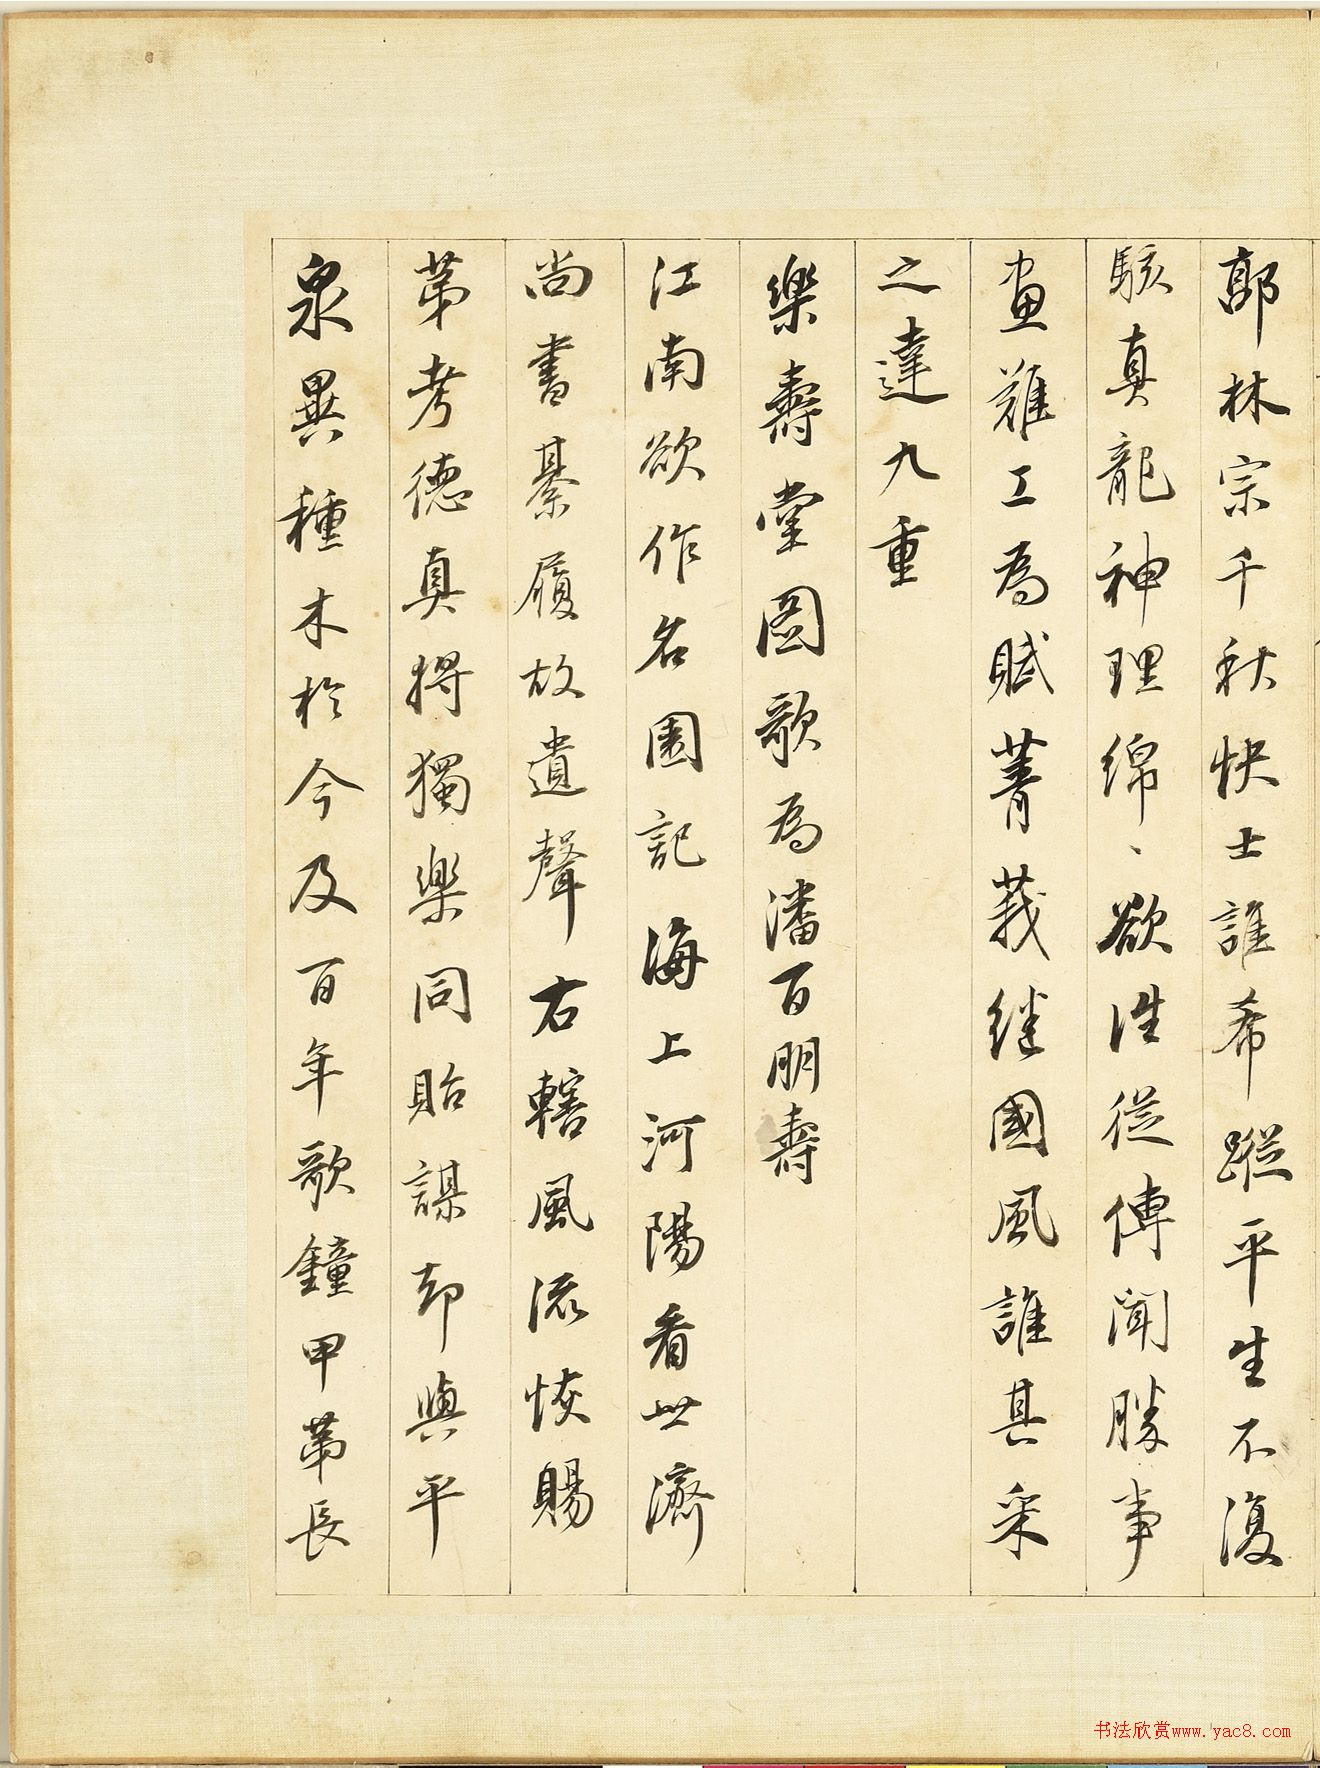 郭林宗千秋快士誰希蹤平生不復
駭真龍神理綿、欲往從傳聞勝事
畫難工為賦菁莪繼國風誰其采
之達九重
樂壽堂圖歌為潘百朋壽
江南欲作名園記海上河陽看世濟
尚書綦履故遺聲右轄風流恢賜
第考德真將獨樂同貽謀卻與平
泉異種木於今及百年歌鐘甲第長
书法欣赏www.yac8.com